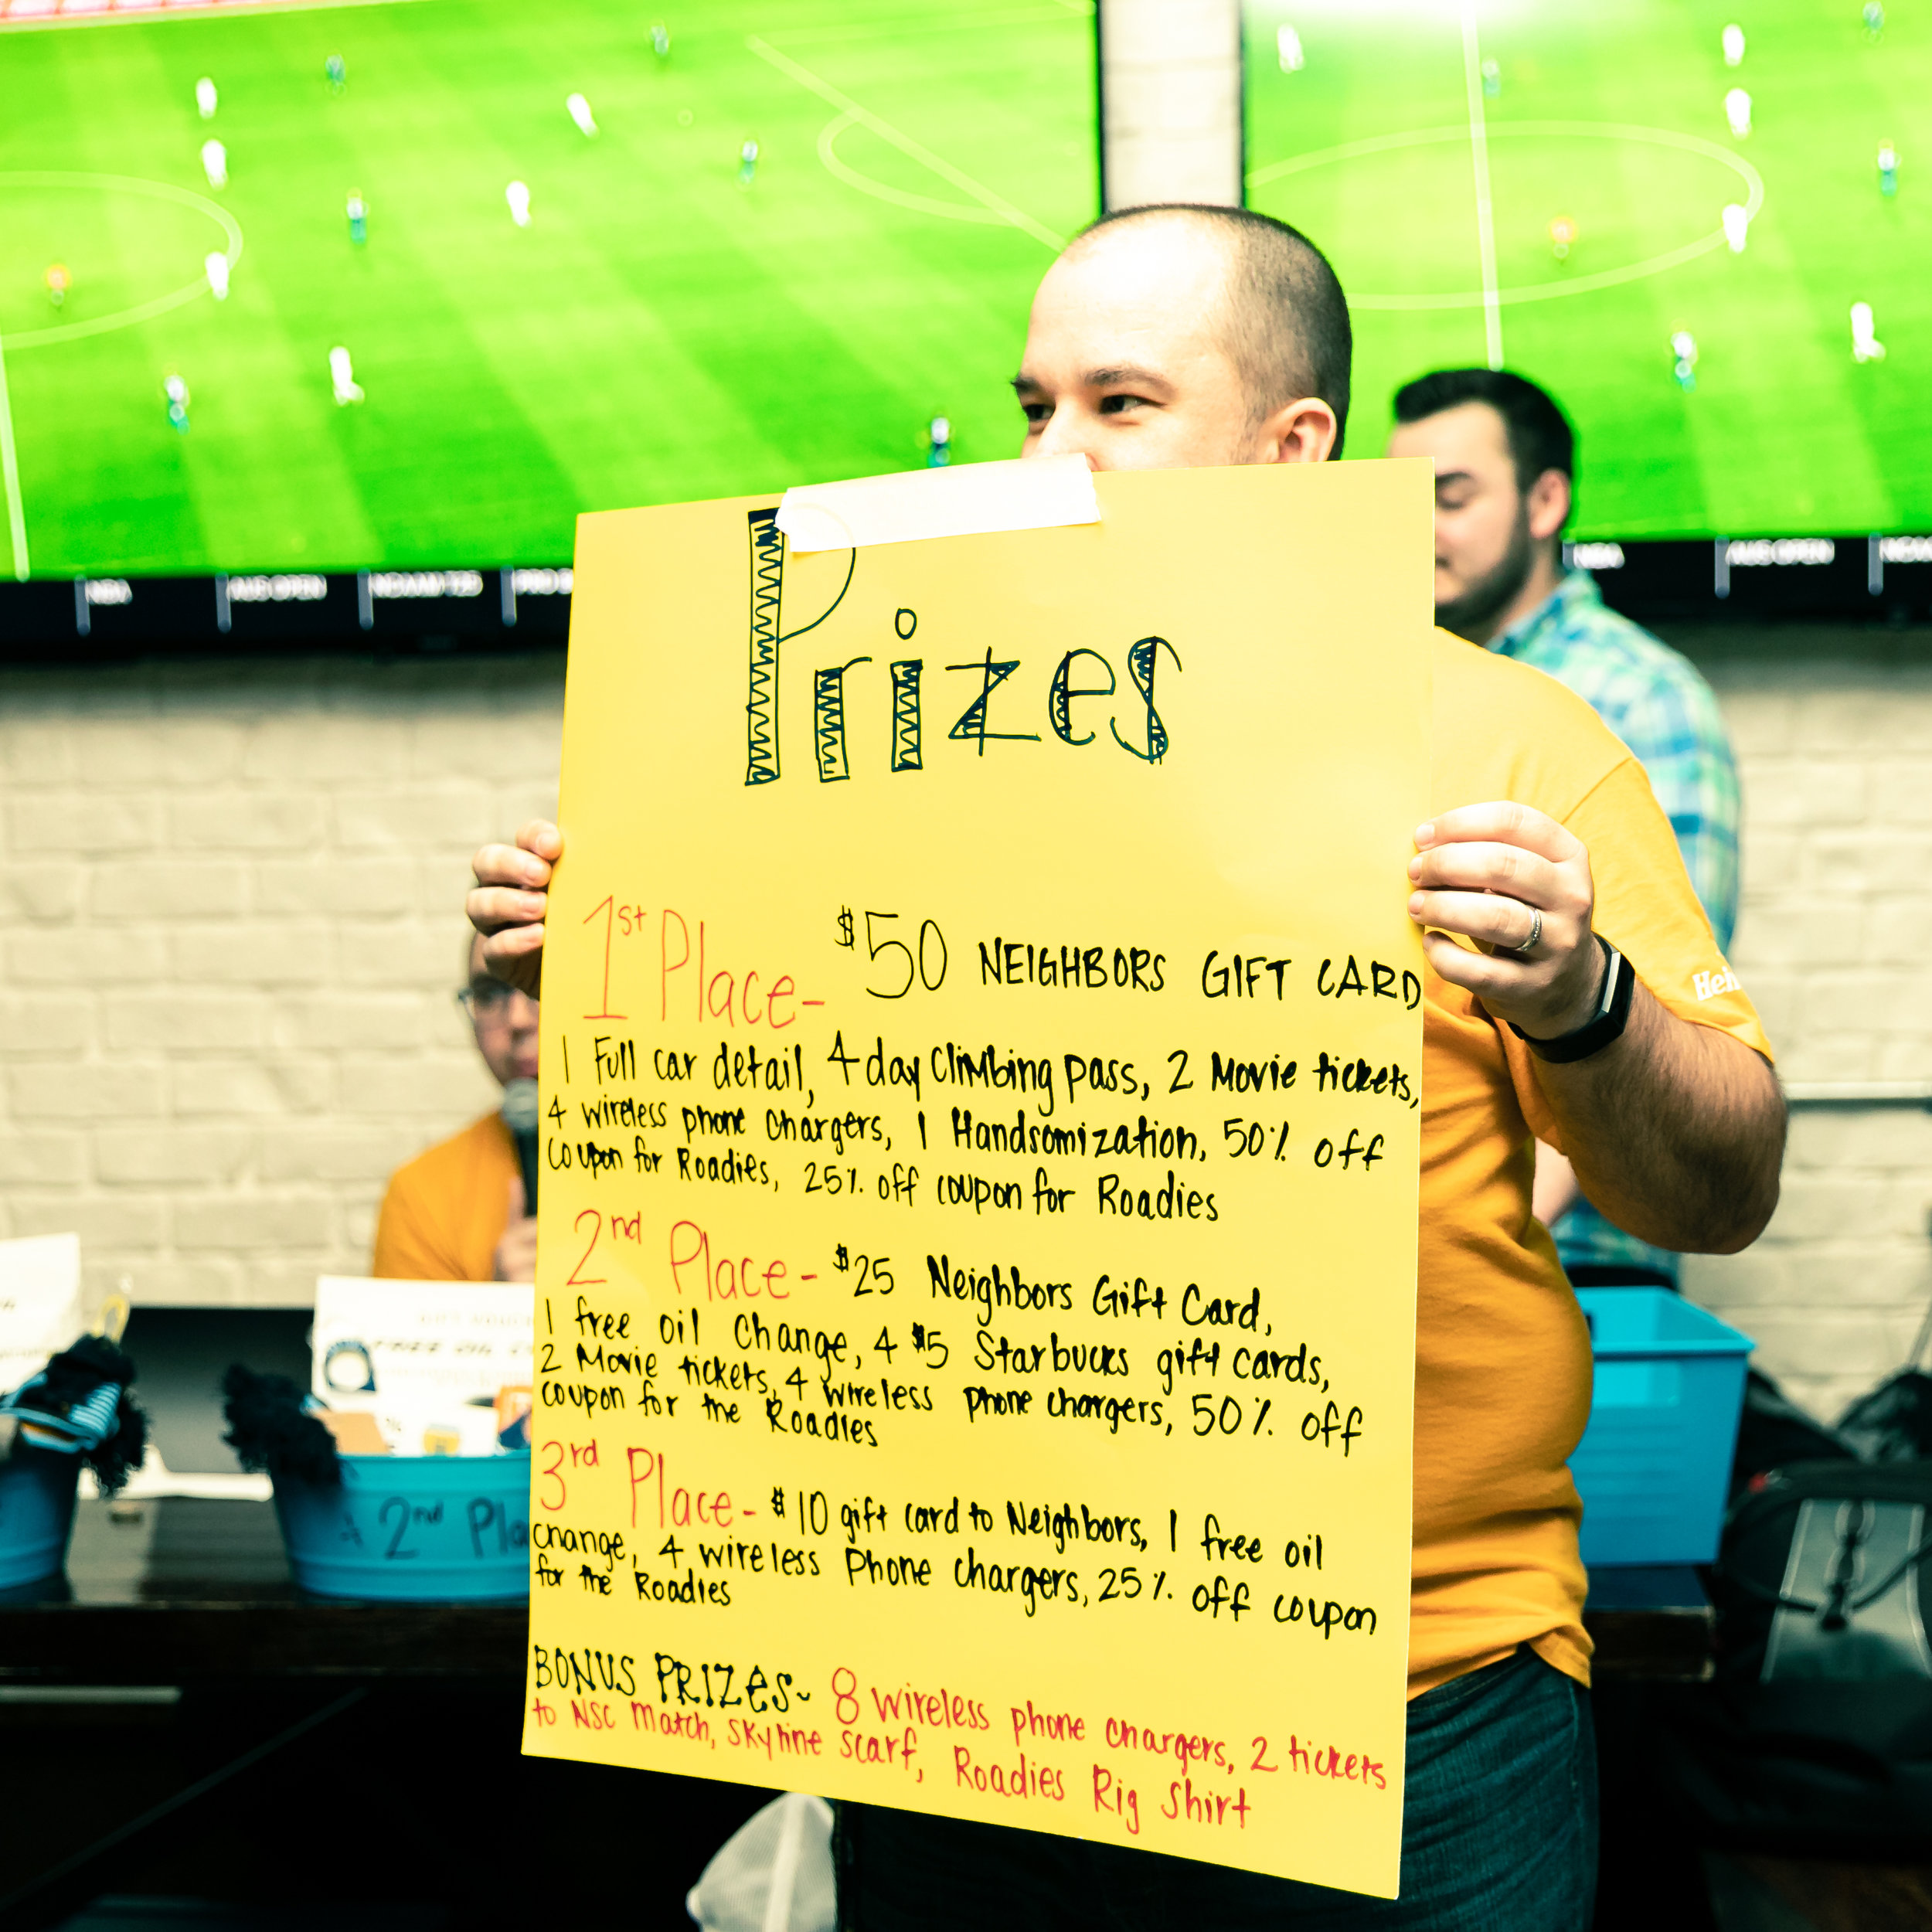 NBA
AUS OPEN
NCAAM T25
NBA
AUS OPEN
Prizes
1st Place- $50 NEIGHBORS GIFT CARD
1 Full car detail, 4 day Climbing pass, 2 Movie tickets,
4 wireless phone chargers, 1 Handsomization, 50% off
coupon for Roadies, 25% off coupon for Roadies
2nd Place- $25 Neighbors Gift Card,
1 free oil change, 4 $5 Starbucks gift cards,
2 Movie tickets, 4 wireless phone chargers, 50% off
coupon for the Roadies
3rd Place- $10 gift card to Neighbors, 1 free oil
change, 4 wireless Phone chargers, 25% off coupon
for the Roadies
BONUS PRIZES~ 8 wireless phone chargers, 2 tickets
to NSC Match, skyline scarf, Roadies Rig Shirt
Hei
2nd Pla